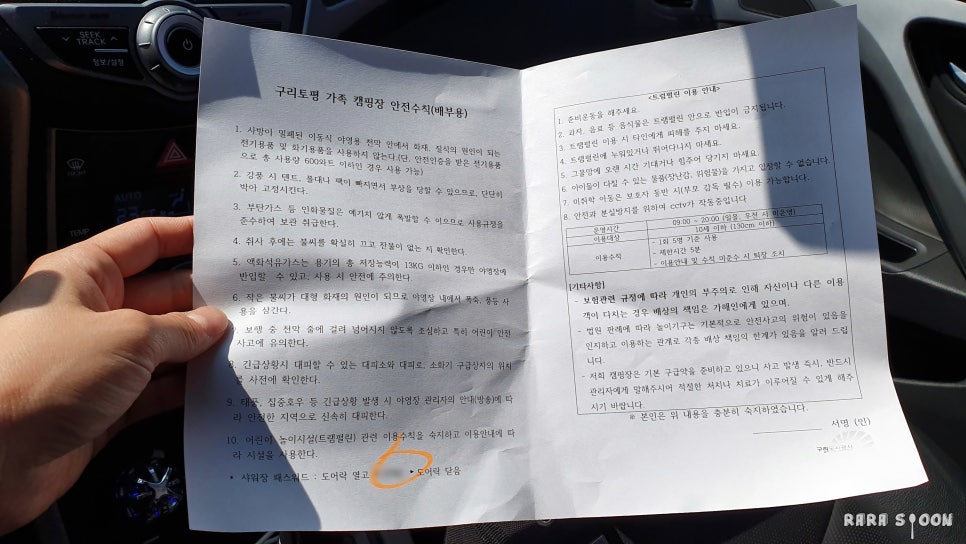 SEEK
TRACK
정보/설정
AUTO
TEMP
구리토평 가족 캠핑장 안전수칙(배부용)
1. 사방이 밀폐된 이동식 야영용 천막 안에서 화재, 질식의 원인이 되는
전기용품 및 화기용품을 사용하지 않는다(단, 안전인증을 받은 전기용품
으로 총 사용량 600와트 이하인 경우 사용 가능)
2. 강풍 시 텐트, 폴대나 팩이 빠지면서 부상을 당할 수 있으므로, 단단히
박아 고정시킨다.
3. 부탄가스 등 인화물질은 예기치 않게 폭발할 수 이으므로 사용규정을
준수하여 보관 취급한다.
4. 취사 후에는 불씨를 확실히 끄고 잔불이 없는 지 확인한다.
5. 액화석유가스는 용기의 총 저장능력이 13KG 이하인 경우만 야영장에
반입할 수 있고, 사용 시 안전에 주의한다.
6. 작은 불씨가 대형 화재의 원인이 되므로 야영장 내에서 폭죽, 풍등 사
용을 삼간다.
7. 보행 중 천막 줄에 걸려 넘어지지 않도록 조심하고 특히 어린이 안전
사고에 유의한다.
8. 긴급상황시 대피할 수 있는 대피소와 대피로, 소화기 구급상자의 위치
를 사전에 확인한다.
9. 태풍, 집중호우 등 긴급상황 발생 시 야영장 관리자의 안내(방송)에 따
라 안전한 지역으로 신속히 대피한다.
10. 어린이 놀이시설(트램펄린) 관련 이용수칙을 숙지하고 이용안내에 따
라 시설을 사용한다.
• 샤워장 패스워드 : 도어락 열고 ▸도어락 닫음
<트램펄린 이용 안내>
1. 준비운동을 해주세요.
2. 과자, 음료 등 음식물은 트램펄린 안으로 반입이 금지됩니다.
3. 트램펄린 이용 시 타인에게 피해를 주지 마세요.
4. 트램펄린에 누워있거나 뛰어다니지 마세요.
5. 그물망에 오랜 시간 기대거나 힘주어 당기지 마세요.
6. 아이들이 다칠 수 있는 물품(장난감, 위험물)을 가지고 입장할 수 없습니다.
7. 미취학 아동은 보호자 동반 시(부모 감독 필수) 이용 가능합니다.
8. 안전과 분실방지를 위하여 cctv가 작동중입니다
운영시간 09:00 ~ 20:00 (일몰, 우천 시 미운영)
이용대상 10세 이하 (130cm 이하)
이용수칙 - 1회 5명 기준 사용
- 제한시간 5분
- 이용안내 및 수칙 미준수 시 퇴장 조치
[기타사항]
- 보험관련 규정에 따라 개인의 부주의로 인해 자신이나 다른 이용
객이 다치는 경우 배상의 책임은 가해인에게 있으며,
- 법원 판례에 따라 놀이기구는 기본적으로 안전사고의 위험이 있음을
인지하고 이용하는 관계로 각종 배상 책임의 한계가 있음을 알려 드립
니다.
- 저희 캠핑장은 기본 구급약을 준비하고 있으니 사고 발생 즉시, 반드시
관리자에게 말해주시어 적절한 처치나 치료가 이루어질 수 있게 해주
시기 바랍니다
※ 본인은 위 내용을 충분히 숙지하였습니다.
서명 (인)
구리도시공사
RARA SPOON